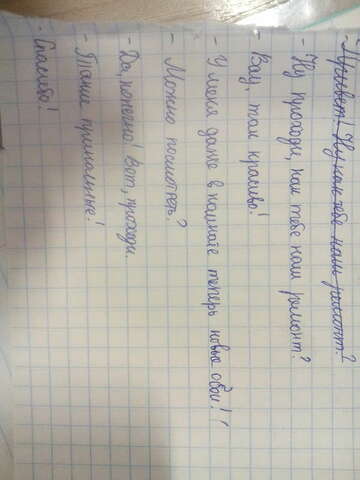 - Привет! Ну как тебе наш ремонт?
- Ну проходи, как тебе наш римонт?
Вау, так красиво!
- У меня даже в комнате теперь новые обои!
- Можно посмотреть?
- Да, конечно! Вот, проходи.
- Такие прикольные!
- Спасибо!